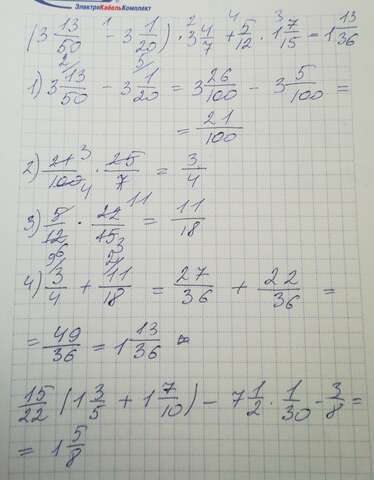 ЭлектроКабельКомплект
(3 13/50 - 3 1/20) · 3 4/7 + 5/12 · 1 7/15 = 1 13/36
1) 3 13/50 - 3 1/20 = 3 26/100 - 3 5/100 =
= 21/100
2) 21/100 · 25/7 = 3/4
3) 5/12 · 22/15 = 11/18
4) 3/4 + 11/18 = 27/36 + 22/36 =
= 49/36 = 1 13/36
15/22 (1 3/5 + 1 7/10) - 7 1/2 · 1/30 - 3/8 =
= 1 5/8